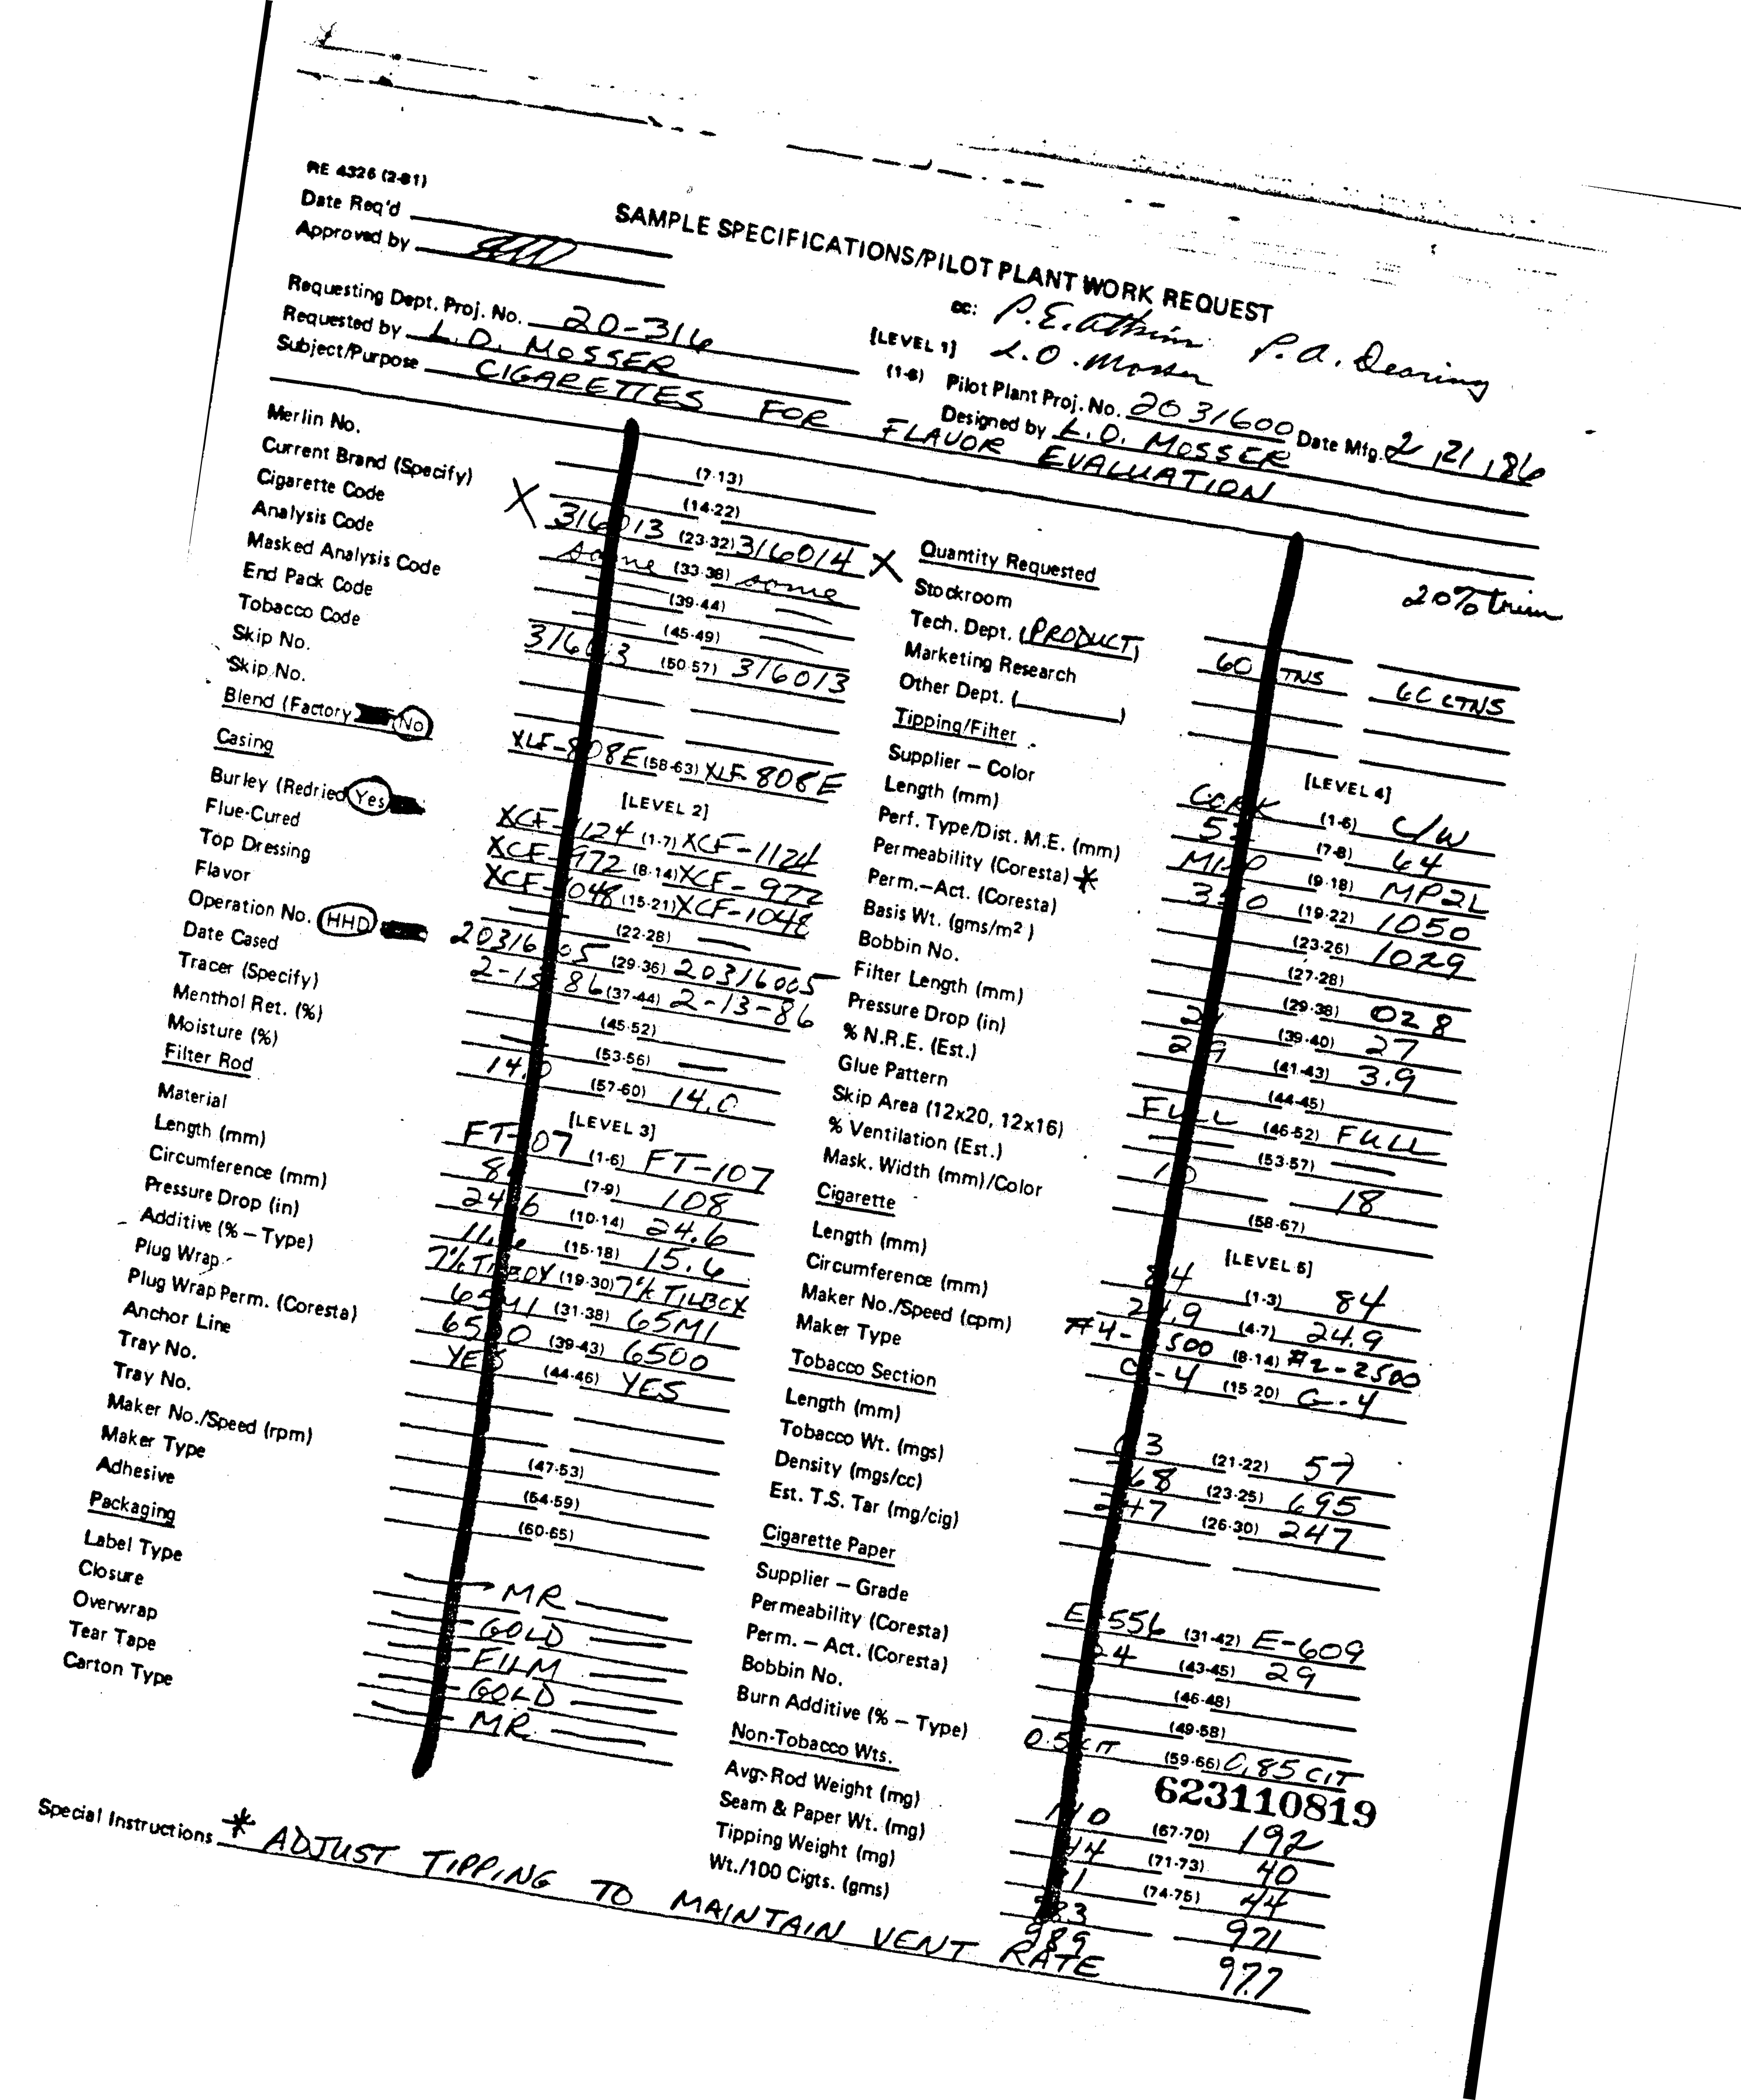 RE 4326 (2-81)
Date Req'd
Approved by
SAMPLE SPECIFICATIONS/PILOT PLANT WORK REQUEST
cc: P.E. Atkins P.A. Dearing
L.D. Mosser
Requesting Dept. Proj. No. 20-316
[LEVEL 1]
Requested by L.D. MOSSER
(1-6) Pilot Plant Proj. No. 2031600 Date Mfg. 2,21,86
Designed by L.D. MOSSER
Subject/Purpose CIGARETTES FOR FLAVOR EVALUATION
Merlin No. (7-13)
Current Brand (Specify) (14-22)
Cigarette Code X 316013 (23-32) 316014 X
Analysis Code same (33-38) same
Masked Analysis Code (39-44)
End Pack Code (45-49)
Tobacco Code 316013 (50-57) 316013
Skip No.
Skip No.
Blend (Factory No) XLF-808E (58-63) XLF-808E
Casing [LEVEL 2]
Burley (Redried Yes XCF-1124 (1-7) XCF-1124
Flue-Cured XCF-972 (8-14) XCF-972
Top Dressing XCF-1048 (15-21) XCF-1048
Flavor (22-28)
Operation No. HHD 20316005 (29-36) 20316005
Date Cased 2-13-86 (37-44) 2-13-86
Tracer (Specify) (45-52)
Menthol Ret. (%) (53-56)
Moisture (%) 14.0 (57-60) 14.0
Filter Rod [LEVEL 3]
Material FT-107 (1-6) FT-107
Length (mm) (7-9) 108
Circumference (mm) 24.6 (10-14) 24.6
Pressure Drop (in) (15-18) 15.6
Additive (% – Type) (19-30)
Plug Wrap 65M1 (31-38) 65M1
Plug Wrap Perm. (Coresta) 6500 (39-43) 6500
Anchor Line YES (44-46) YES
Tray No.
Tray No.
Maker No./Speed (rpm) (47-53)
Maker Type (54-59)
Adhesive (60-65)
Packaging
Label Type MR
Closure GOLD
Overwrap FILM
Tear Tape GOLD
Carton Type MR
20% trim
Quantity Requested
Stockroom
Tech. Dept. (PRODUCT) 60 CTNS 60 CTNS
Marketing Research
Other Dept. ( )
Tipping/Filter [LEVEL 4]
Supplier – Color CORK (1-6) C/W
Length (mm) (7-8) 64
Perf. Type/Dist. M.E. (mm) (9-18) MP2L
Permeability (Coresta) * 350 (19-22) 1050
Perm.–Act. (Coresta) (23-26) 1029
Basis Wt. (gms/m²) (27-28)
Bobbin No. (29-38) 028
Filter Length (mm) (39-40) 27
Pressure Drop (in) 2.9 (41-43) 3.9
% N.R.E. (Est.) (44-45)
Glue Pattern FULL (46-52) FULL
Skip Area (12x20, 12x16) (53-57)
% Ventilation (Est.) 18
Mask. Width (mm)/Color (58-67)
Cigarette [LEVEL 5]
Length (mm) 84 (1-3) 84
Circumference (mm) 24.9 (4-7) 24.9
Maker No./Speed (cpm) #4-2500 (8-14) #2-2500
Maker Type G-4 (15-20) G-4
Tobacco Section
Length (mm) 63 (21-22) 57
Tobacco Wt. (mgs) (23-25) 695
Density (mgs/cc) 247 (26-30) 247
Est. T.S. Tar (mg/cig)
Cigarette Paper
Supplier – Grade E-556 (31-42) E-609
Permeability (Coresta) 24 (43-45) 29
Perm. – Act. (Coresta) (46-48)
Bobbin No. (49-58)
Burn Additive (% – Type) 0.5 CIT (59-66) 0.85 CIT
623110819
Non-Tobacco Wts.
Avg. Rod Weight (mg) (67-70) 192
Seam & Paper Wt. (mg) 44 (71-73) 40
Tipping Weight (mg) (74-75) 44
Wt./100 Cigts. (gms) 921
989 977
Special Instructions * ADJUST TIPPING TO MAINTAIN VENT RATE